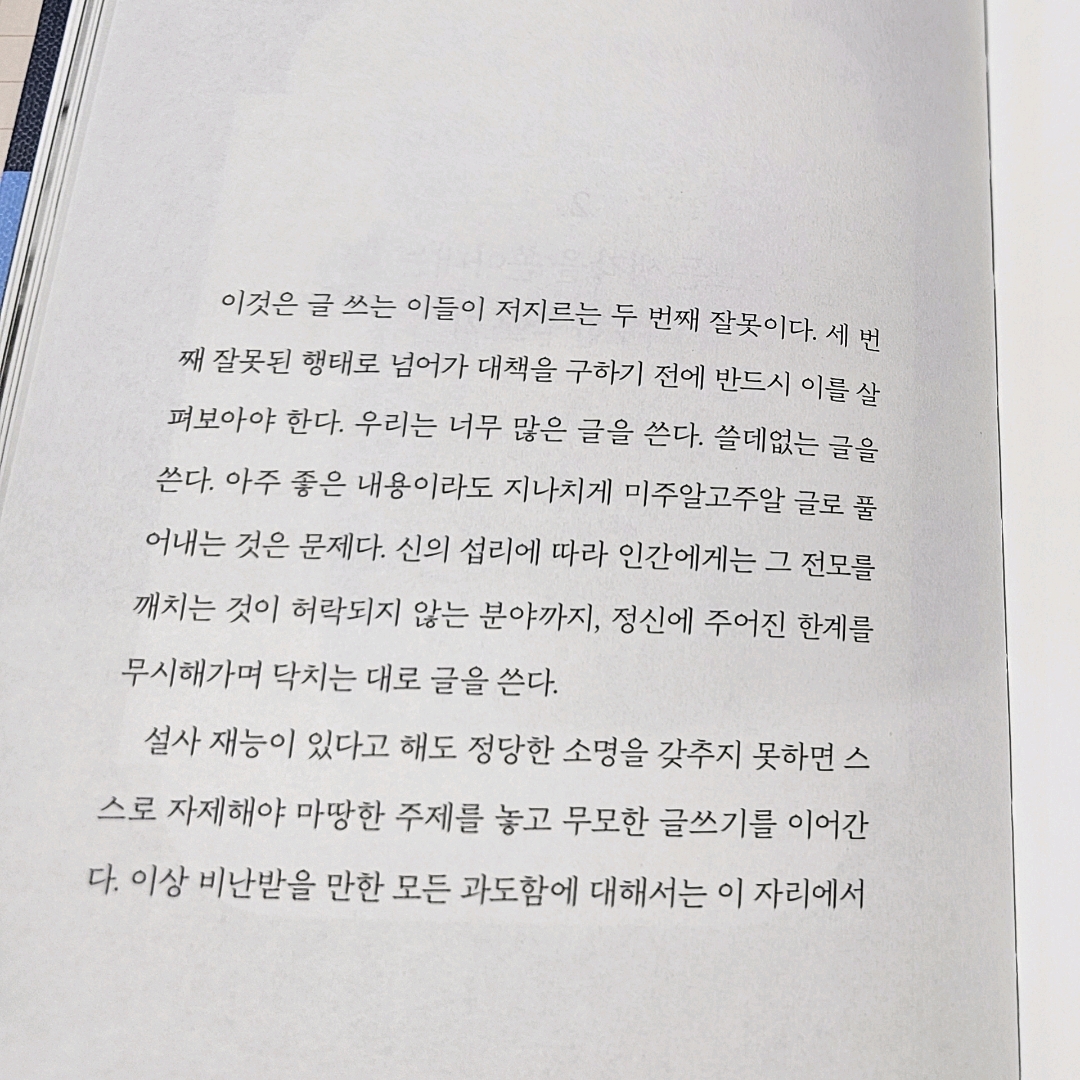 이것은 글 쓰는 이들이 저지르는 두 번째 잘못이다. 세 번
째 잘못된 행태로 넘어가 대책을 구하기 전에 반드시 이를 살
펴보아야 한다. 우리는 너무 많은 글을 쓴다. 쓸데없는 글을
쓴다. 아주 좋은 내용이라도 지나치게 미주알고주알 글로 풀
어내는 것은 문제다. 신의 섭리에 따라 인간에게는 그 전모를
깨치는 것이 허락되지 않는 분야까지, 정신에 주어진 한계를
무시해가며 닥치는 대로 글을 쓴다.
설사 재능이 있다고 해도 정당한 소명을 갖추지 못하면 스
스로 자제해야 마땅한 주제를 놓고 무모한 글쓰기를 이어간
다. 이상 비난받을 만한 모든 과도함에 대해서는 이 자리에서